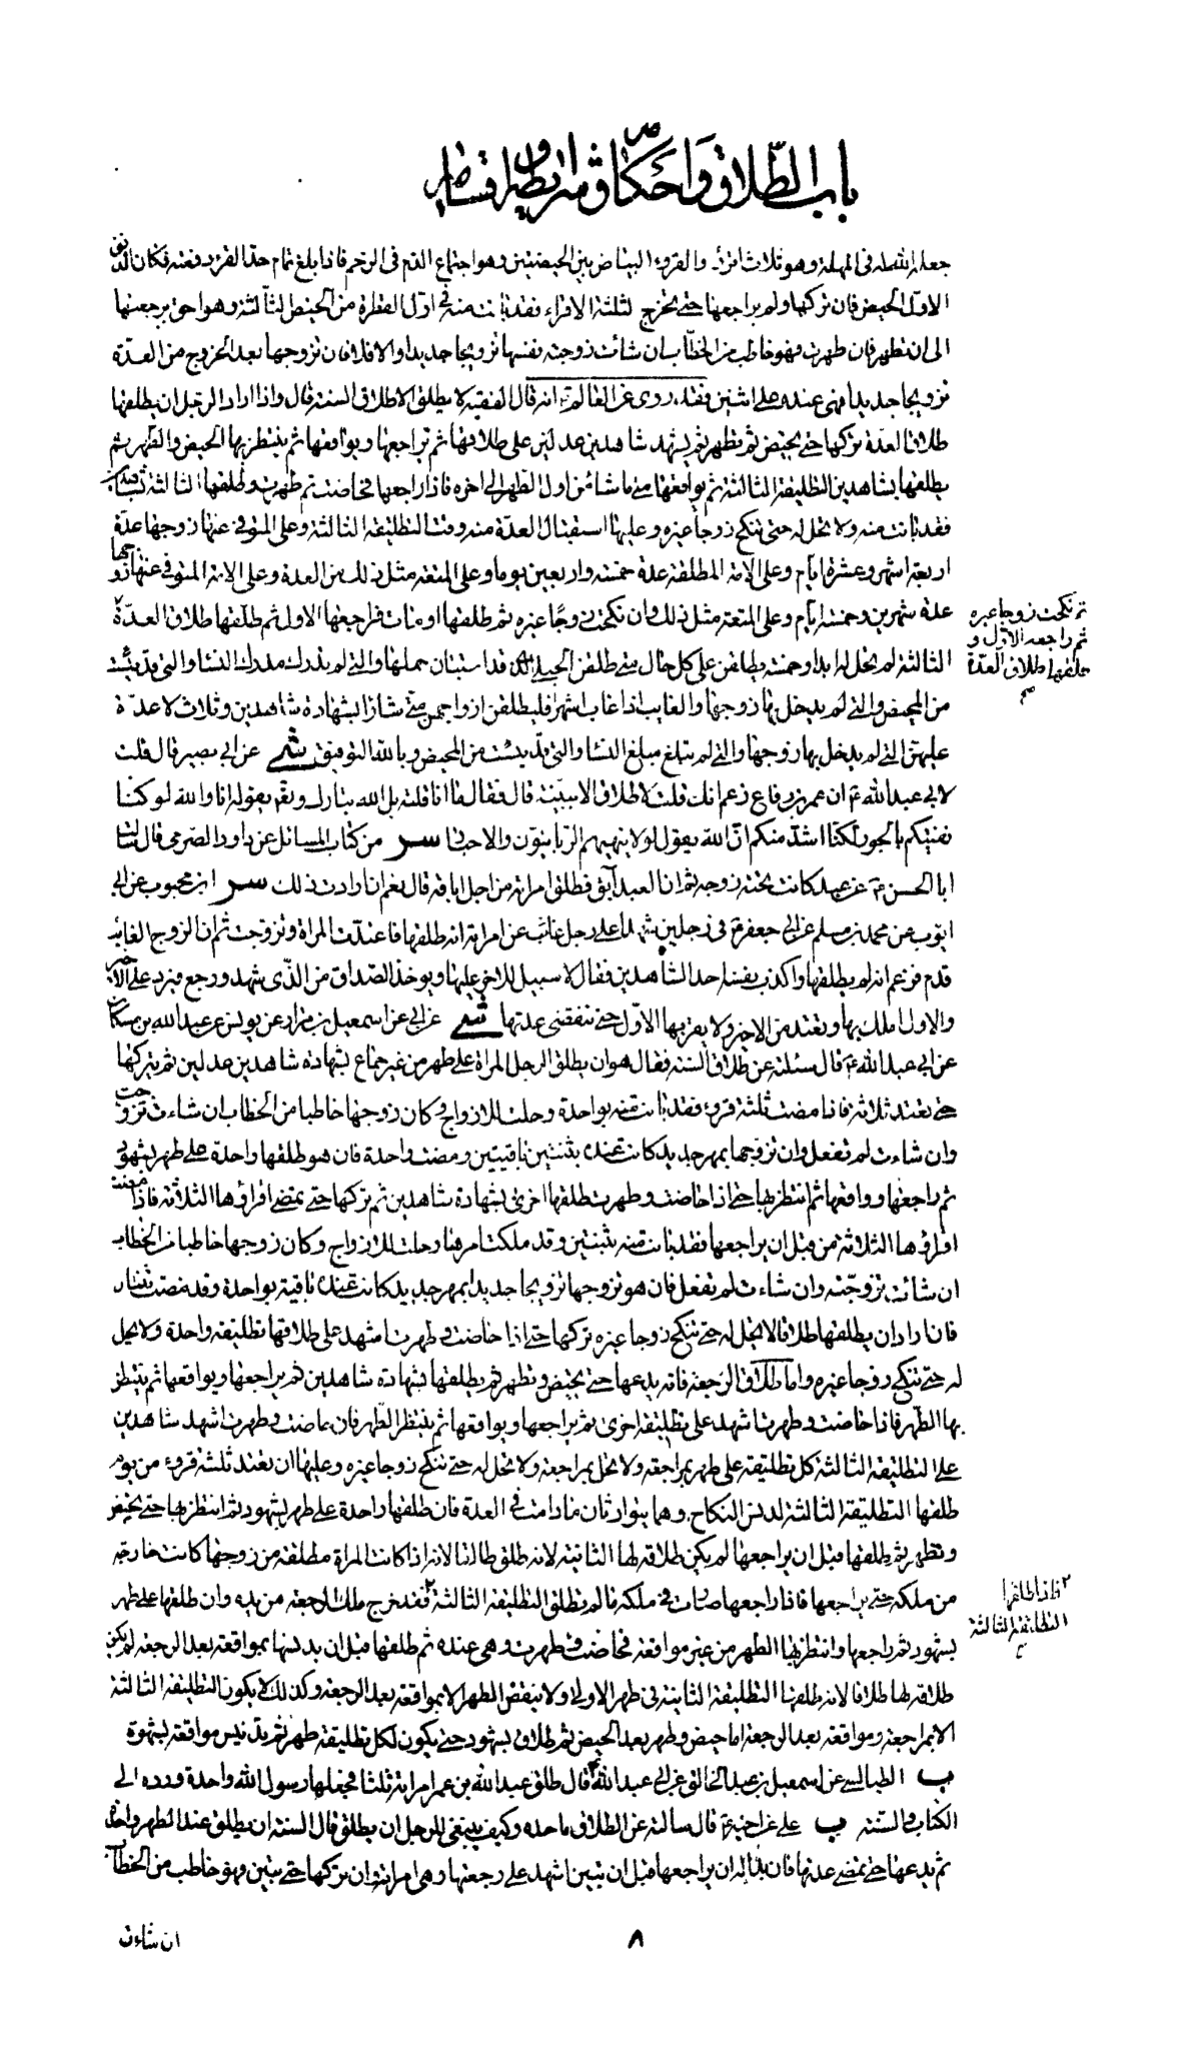 باب الطلاق واحكامه وشرايطه واقسامه
جعله الله له في المهلة وهو ثلاث اقرؤ والقروء البياض بين الحيضتين وهو اجتماع الدم في الرحم فاذا بلغ تمام حد القرؤ دفعته فكان الدفق
الاول الحيض فان تركها ولم يراجعها حتى تخرج لثلثة الاقراء فقد بانت منه في اول القطرة من الحيض الثالثة وهو احق برجعتها
الى ان تطهر فان طهرت فهو خاطب من الخطاب ان شاءت زوجته نفسها تزويجا جديدا والا فلا فان تزوجها بعد الخروج من العدة
تزويجا جديدا فهي عنده على اثنين فقد روي عن العالم ع انه قال الفقيه لا يطلق الا طلاق السنة قال واذا اراد الرجل ان يطلقها
طلاق العدة تركها حتى تحيض ثم تطهر ثم يشهد شاهدين عدلين على طلاقها ثم يراجعها ويواقعها ثم ينتظر بها الحيض والطهر ثم
يطلقها بشاهدين التطليقة الثالثة ثم يواقعها متى ما شاء من اول الطهر الى اخره فاذا راجعها فحاضت ثم طهرت وطلقها الثالثة بشاهدين
فقد بانت منه ولا تحل له حتى تنكح زوجا غيره وعليها استقبال العدة منه وقت التطليقة الثالثة وعلى المتوفى عنها زوجها عدة
اربعة اشهر وعشرة ايام وعلى الامة المطلقة عدة خمسة واربعين يوما وعلى المتعة مثل ذلك من العدة وعلى الامة المتوفى عنها زوجها
عدة شهرين وخمسة ايام وعلى المتعة مثل ذلك وان نكحت زوجا غيره ثم طلقها او مات فراجعها الاول ثم طلقها طلاق العدة
ثم نكحت زوجا غيره
ثم راجعه الاول و
طلقها طلاق العدة
الثالثة لم تحل له ابدا وخمسة يطلقن على كل حال متى طلقن الحبلى قد استبان حملها والتي لم تدرك مدرك النساء والتي قد يئست
من المحيض والتي لم يدخل بها زوجها والغايب اذا غاب اشهر فليطلقهن ازواجهن متى شاؤا بشهادة شاهدين وثلاث لا عدة
عليهن التي لم يدخل بها زوجها والتي لم تبلغ مبلغ النساء والتي قد يئست من المحيض وبالله التوفيق شى عن ابي بصير قال قلت
لابي عبد الله ع ان عمر بن رياح زعم انك قلت لا طلاق الا ببينة قال فقال ما انا قلته بل الله تبارك وتعالى يقوله انا والله لو كنا
نفتيكم بالجور لكنا اشد منكم ان الله يقول لولا ينهيهم الربانيون والاحبار سر من كتاب المسائل عن داود الصرمي قال سالت
ابا الحسن ع عن عبد كانت تحته زوجة ثم ان العبد آبق فطلق امراته من اجل اباقه قال نعم ان ارادت ذلك سر ابن محبوب عن ابي
ايوب عن محمد بن مسلم عن ابي جعفر ع في رجلين شهدا على رجل غائب عن امراته انه طلقها فاعتدت المراة وتزوجت ثم ان الزوج الغائب
قدم فزعم انه لم يطلقها واكذب نفسه احد الشاهدين فقال لا سبيل للاخير عليها ويوخذ الصداق من الذي شهد ورجع فيرد على الاخير
والاول املك بها وتعتد من الاخير ولا يقربها الاول حتى تنقضي عدتها شى عن ابي عن اسمعيل بن مرار عن يونس عن عبد الله بن مسكان
عن ابي عبد الله ع قال سئلته عن طلاق السنة فقال هو ان يطلق الرجل المراة على طهر من غير جماع بشهادة شاهدين عدلين ثم يتركها
حتى تعتد ثلاثه فاذا مضت ثلثة قروء فقد بانت منه بواحدة وحلت للازواج وكان زوجها خاطبا من الخطاب ان شاءت تزوجت
وان شاءت لم تفعل وان تزوجها بمهر جديد كانت عنده بثنتين باقيتين ومضت واحدة فان هو طلقها واحدة على طهر بشهود
ثم راجعها وواقعها ثم انتظر بها حتى اذا حاضت وطهرت طلقها اخرى بشهادة شاهدين ثم تركها حتى تمضي اقراؤها الثلاثة فاذا مضت
اقراؤها الثلاثة من قبل ان يراجعها فقد بانت منه بثنتين وقد ملكت امرها وحلت للازواج وكان زوجها خاطبا من الخطاب
ان شائت تزوجته وان شاءت لم تفعل فان هو تزوجها تزويجا جديدا بمهر جديد كانت عنده باقية بواحدة وقد مضت ثنتان
فان اراد ان يطلقها طلاقا لا تحل له حتى تنكح زوجا غيره تركها حتى اذا حاضت وطهرت اشهد على طلاقها تطليقة واحدة ولا تحل
له حتى تنكح زوجا غيره واما طلاق الرجعة فانه يدعها حتى تحيض وتطهر ثم يطلقها بشهادة شاهدين ثم يراجعها ويواقعها ثم ينتظر
بها الطهر فاذا حاضت وطهرت اشهد على تطليقة اخرى ثم يراجعها ويواقعها ثم ينتظر الطهر فان حاضت وطهرت اشهد شاهدين
على التطليقة الثالثة كل تطليقة على طهر بمراجعة ولا تحل بمراجعة ولا تحل له حتى تنكح زوجا غيره وعليها ان تعتد ثلثة قروء من يوم
طلقها التطليقة الثالثة لدنس النكاح وهما يتوارثان ما دامت في العدة فان طلقها واحدة على طهر بشهود ثم انتظر بها حتى تحيض
وتطهر ثم طلقها قبل ان يراجعها لم يكن طلاقه لها الثانية لانه طلق طالقا لانه اذا كانت المراة مطلقة من زوجها كانت خارجة
من ملكه حتى يراجعها فاذا راجعها صارت في ملكه ما لم تطلق التطليقة الثالثة فقد خرج ملك الرجعة من يده وان طلقها على طهر
٢ فاذا طلقها
التطليقة الثالثة
بشهود ثم راجعها وانتظر بها الطهر من غير مواقعة فحاضت وطهرت وهي عنده ثم طلقها قبل ان يدنسها بمواقعة بعد الرجعة لم يكن
طلاقه لها طلاقا لانه طلقها التطليقة الثانية في طهر الاولى ولا ينقض الطهر الا بمواقعة بعد الرجعة وكذلك لا يكون التطليقة الثالثة
الا بمراجعة ومواقعة بعد الرجعة اما حيض وطهر بعد الحيض ثم طلاق بشهود حتى يكون لكل تطليقة طهر ثم تدنيس مواقعة بشهوة
ب الطيالسي عن اسمعيل بن عبد الخالق عن ابي عبد الله ع قال طلق عبد الله بن عمر امراته ثلثا فجعلها رسول الله واحدة ورده الى
الكتاب والسنة ب علي عن اخيه ع قال سالته عن الطلاق ما حده وكيف ينبغي للرجل ان يطلق قال السنة ان يطلق عند الطهر واحدة
ثم يدعها حتى تمضي عدتها فان بدا له ان يراجعها قبل ان تبين اشهد على رجعتها وهي امراته وان تركها حتى تبين فهو خاطب من الخطاب
ان شاءت
٨